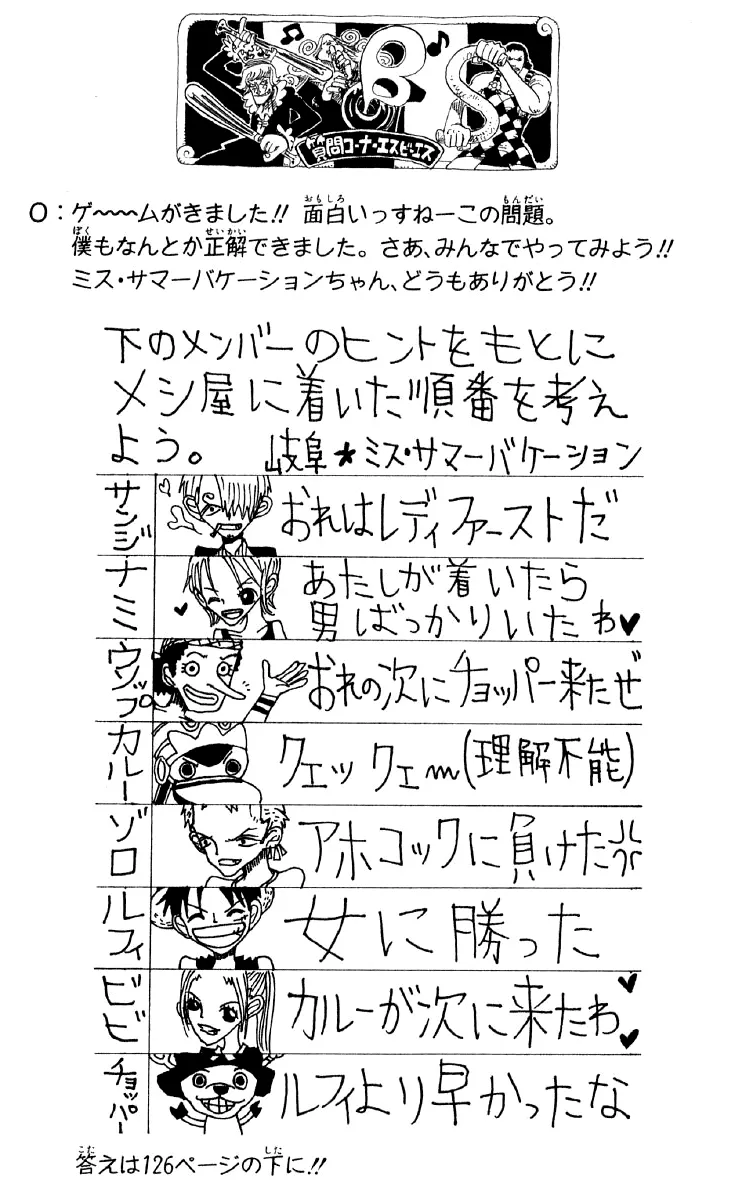 BS
質問コーナー・エスビーエス
O：ゲ〜〜〜ムがきました!! 面白いっすねーこの問題。
僕もなんとか正解できました。さあ、みんなでやってみよう!!
ミス・サマーバケーションちゃん、どうもありがとう!!
下のメンバーのヒントをもとに
メシ屋に着いた順番を考え
よう。 岐阜★ミス・サマーバケーション
サンジ おれはレディファーストだ
ナミ あたしが着いたら
男ばっかりいたわ♥
ウソップ おれの次にチョッパー来たぜ
カルー クェックェ〜(理解不能)
ゾロ アホコックに負けた
ルフィ 女に勝った
ビビ カルーが次に来たわ♥♥
チョッパー ルフィより早かったな
答えは126ページの下に!!